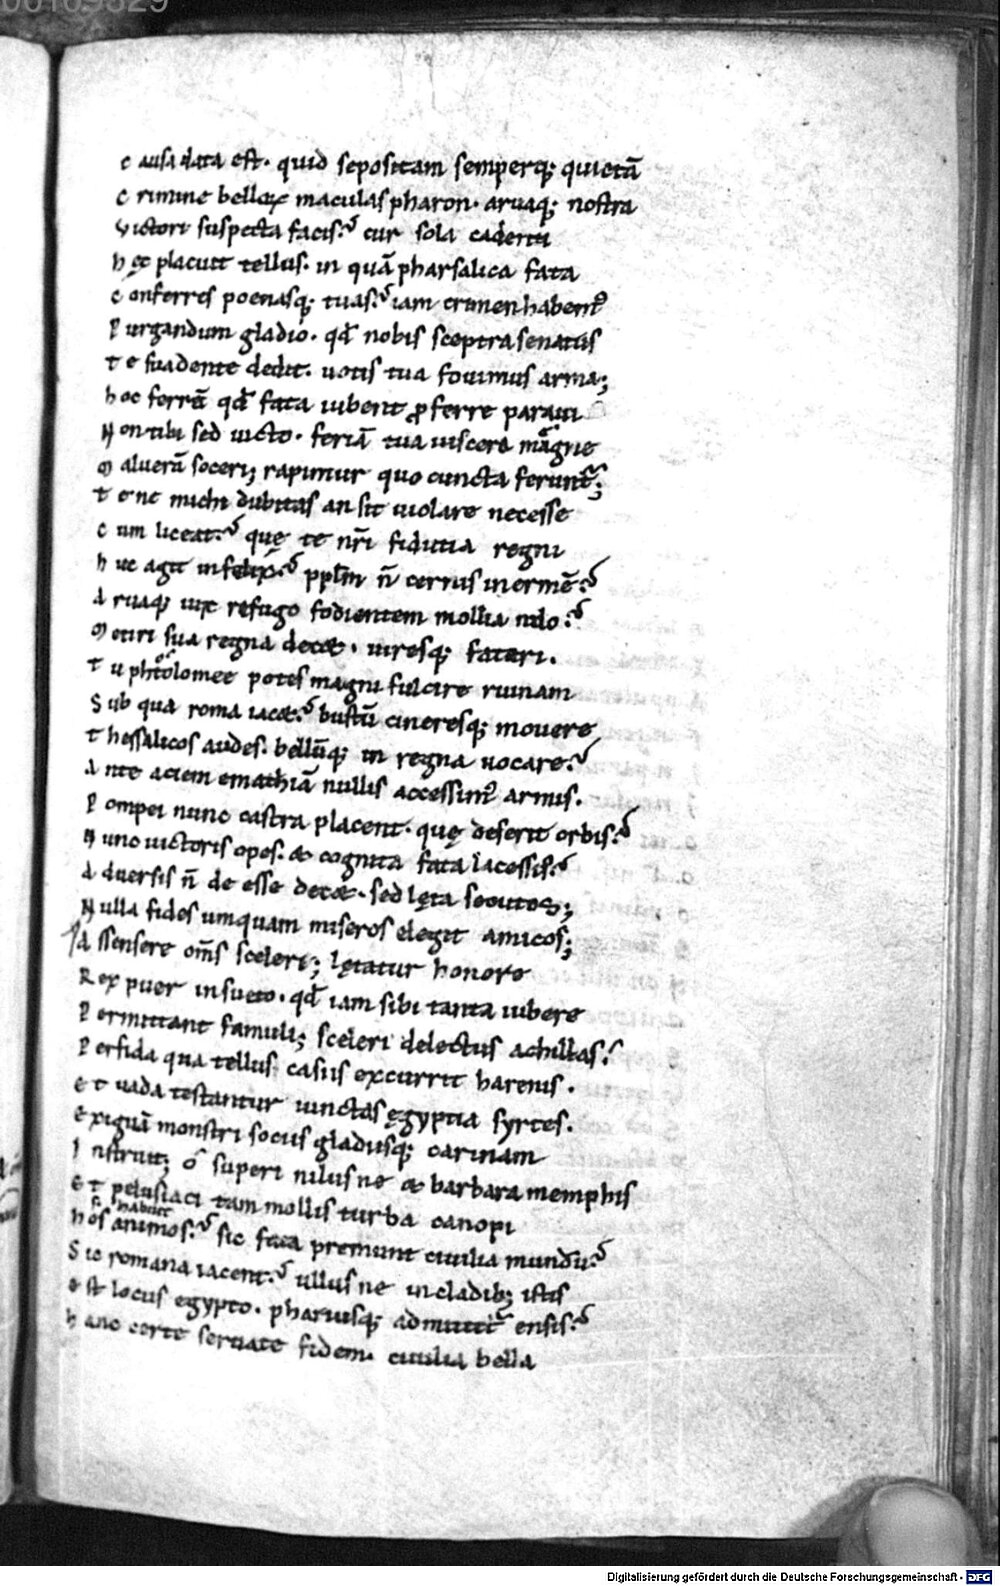 00109329
C ausa data est. quid sepositam semperq; quietā
C rimine bellorꝝ maculas pharon. aruaq; nostra
V ictori suspecta facis? cur sola cadenti
h ęc placuit tellus. in quā pharsalica fata
C onferres poenasq; tuas? iam crimen habemꝰ
P urgandum gladio. qđ nobis sceptra senatus
T e suadente dedit. uotis tua fouimus arma;
h oc ferrū qđ fata iubent ꝓferre paraui
N on tibi sed uicto. feriā tua uiscera magne
M aluerā soceri; rapimur quo cuncta ferunt᷑;
T e ne michi dubitas an sit uiolare necesse
C um liceat? quę te nr̄i fidutia regni
h uc agit infelix? pplm̄ n̄ cernis inermē?
A ruaq; uix refugo fodientem mollia nilo?
M etiri sua regna decet. uiresq; fateri.
T u phtolomee potes magni fulcire ruinam
S ub qua roma iacet? bustū cineresq; mouere
T hessalicos audes. bellūq; in regna uocare?
A nte aciem emathiā nullis accessimꝰ armis.
P ompei nunc castra placent. quę deserit orbis?
N unc uictoris opes. & cognita fata lacessis?
A duersis n̄ de esse decet. sed lęta secutos;
N ulla fides umquam miseros elegit amicos;
A ssensere om̄s sceleri; lętatur honore
R ex puer insueto. qđ iam sibi tanta iubere
P ermittant famuli; sceleri delectus achillas.
P erfida qua tellus casiis excurrit harenis.
E t uada testantur iunctas ęgyptia syrtes.
E xiguā monstri socus gladiisq; carinam
I nstruit; o superi nilusne & barbara memphis
E t pelusiaci tam mollis turba canopi
h os animos? sic fata premunt ciuilia mundū?
habuit
S ic romana iacent? ullusne in cladib; istis
E st locus egypto. phariusq; admittit᷑ ensis?
h anc certe seruate fidem. ciuilia bella
Digitalisierung gefördert durch die Deutsche Forschungsgemeinschaft - DFG